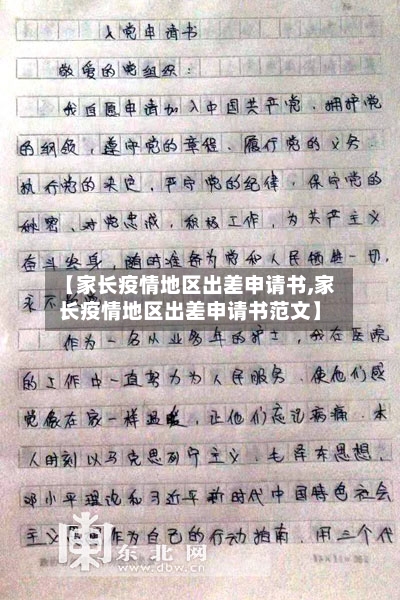 入党申请书
敬爱的党组织：
我自愿申请加入中国共产党，拥护党
的纲领，遵守党的章程、履行党的义务、
执行党的决定，严守党的纪律，保守党的
秘密、对党忠诚，积极工作，为共产主义
奋斗终身，随时准备为党和人民牺牲一切，
永不
【家长疫情地区出差申请书,家
长疫情地区出差申请书范文】
作为一名从业多年的护士，我在医院
的工作中一直努力为人民服务、使他们感
觉像在家一样温暖，让他们忘记病痛。本
人时刻以马克思列宁主义、毛泽东思想、
邓小平理论和习近平新时代中国特色社会
主义 作为自己的行动指南，用三个代
东北网
www.dbw.cn